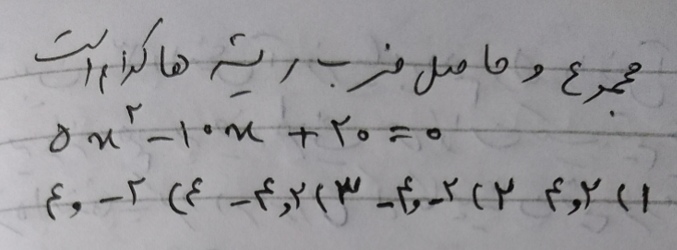 مجموع و حاصل ضرب ریشه ها کدام است
۵x²-۱۰x+۲۰=۰
۱) ۲ و ۴ ۲) ۲- و ۴- ۳) ۲ و ۴- ۴) ۲- و ۴